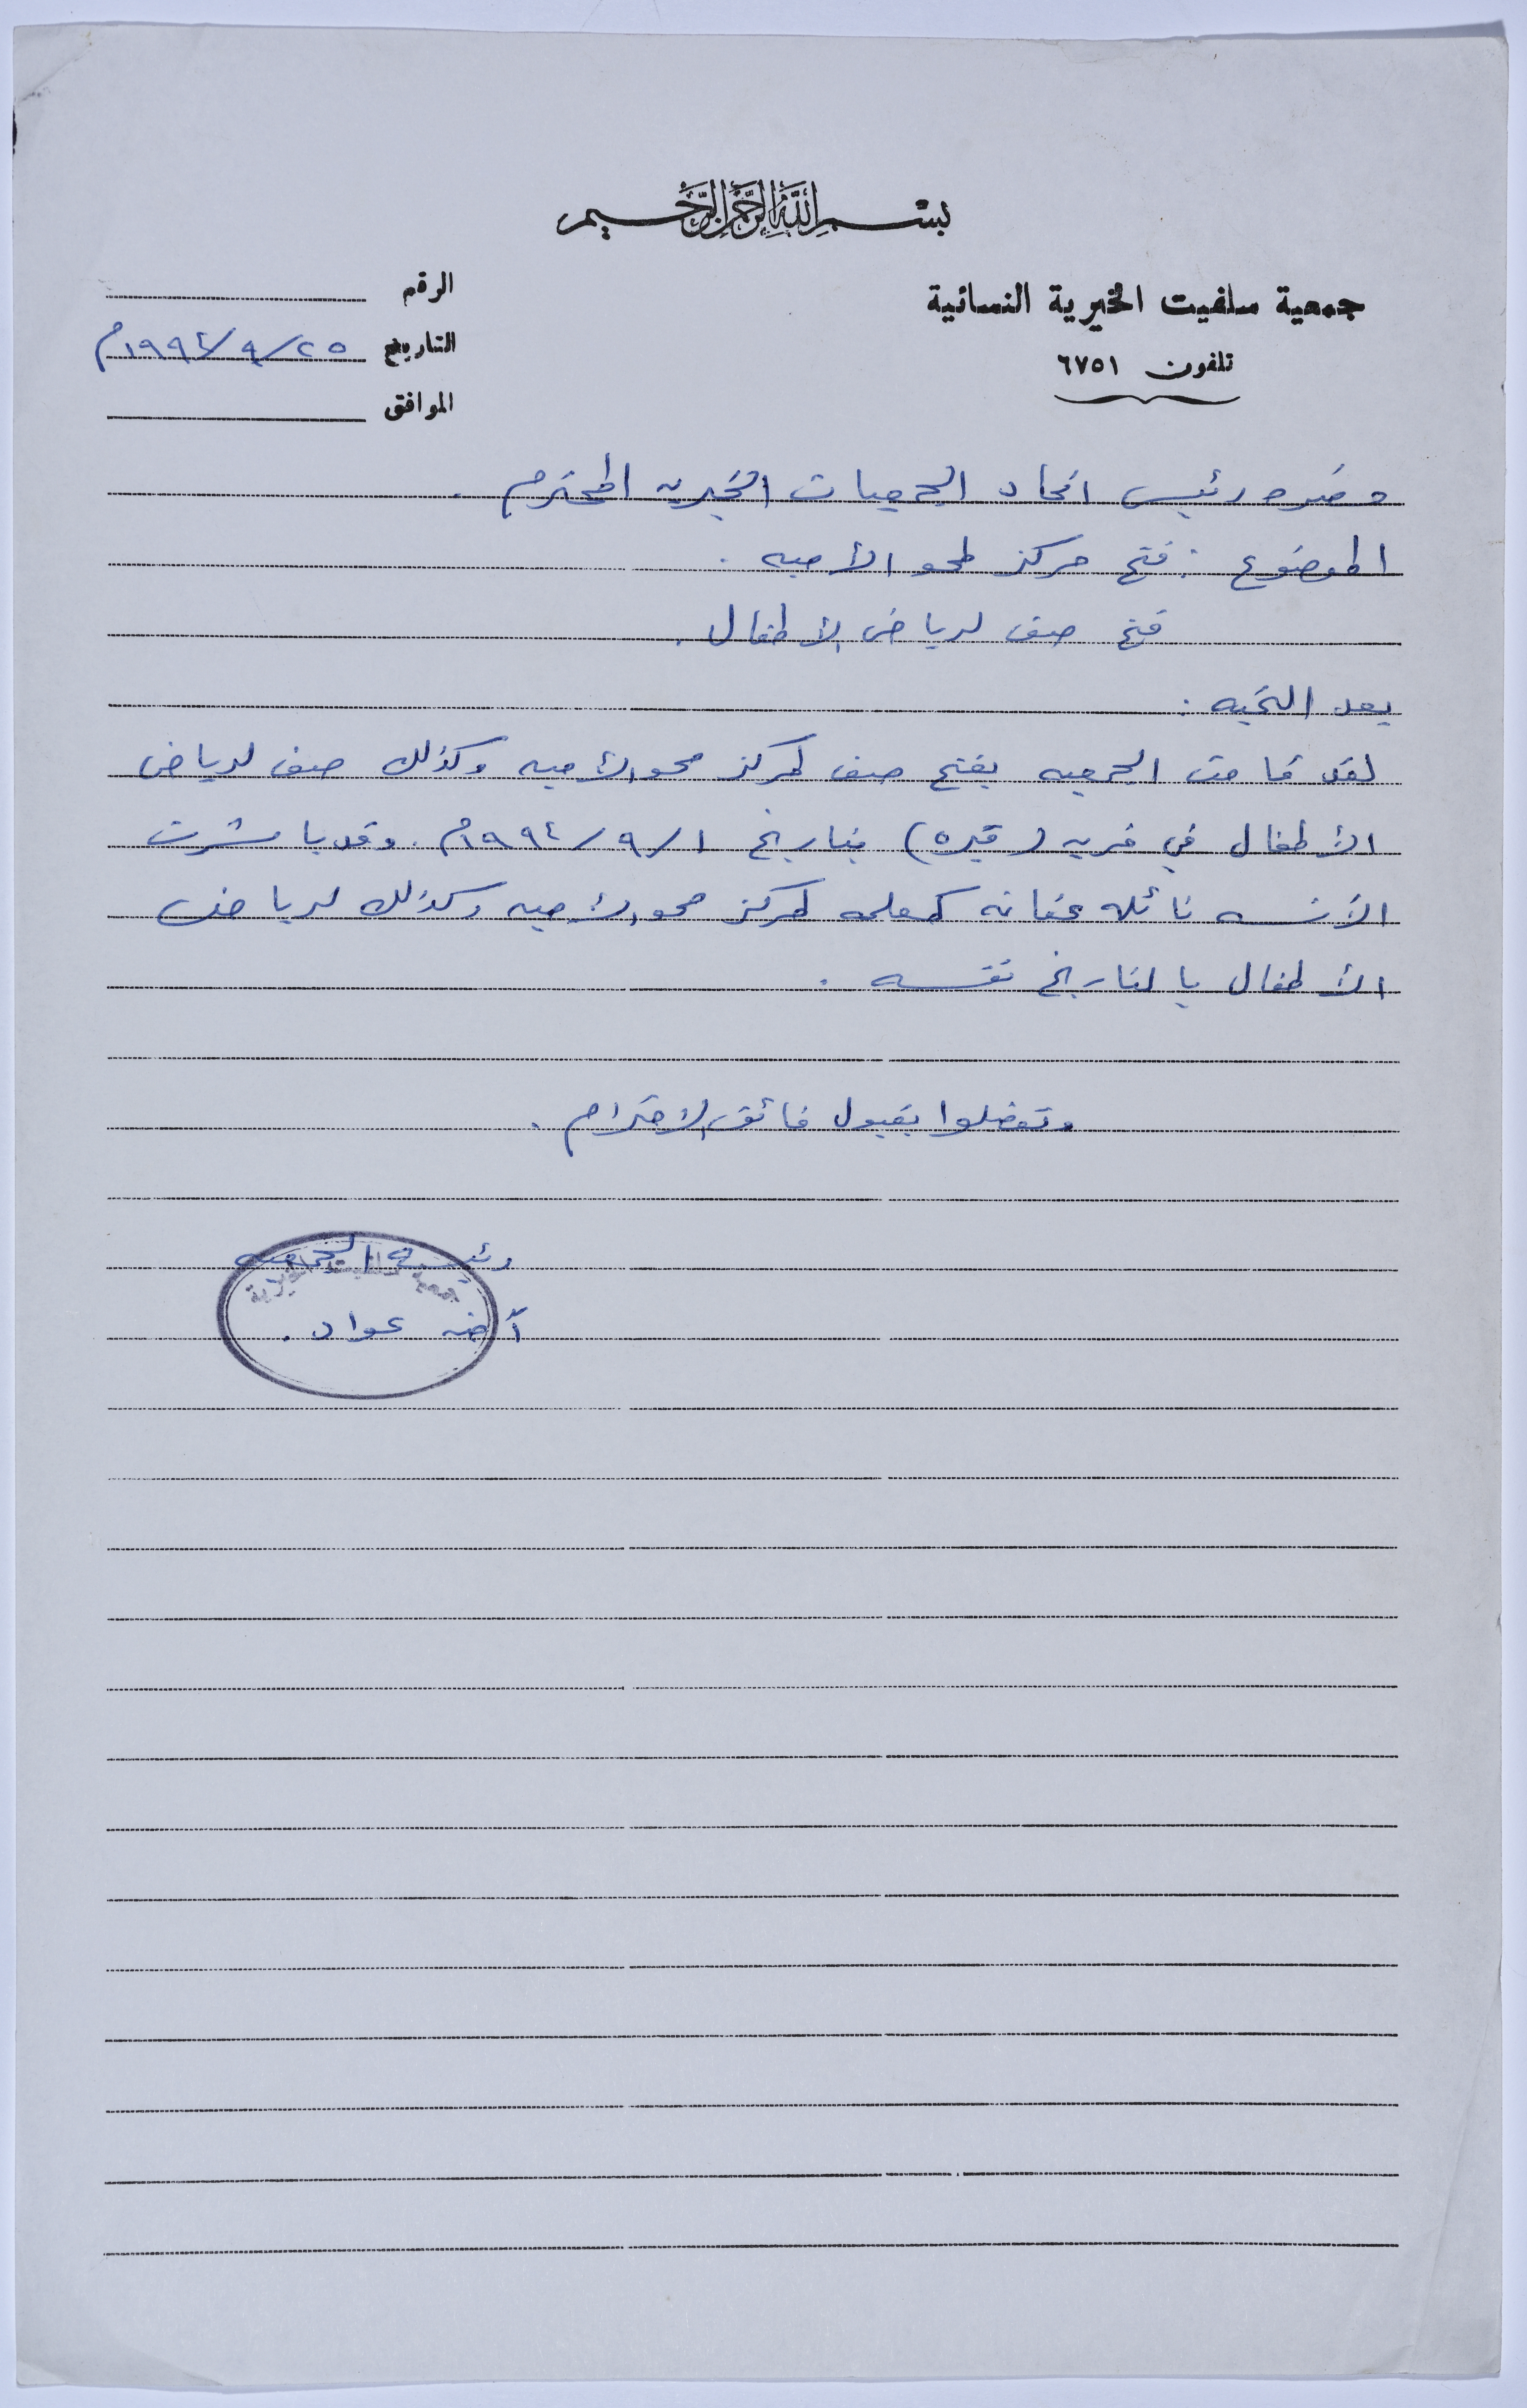 بسم الله الرحمن الرحيم
جمعية سلفيت الخيرية النسائية
تلفون ٦٧٥١
الرقم
التاريخ ٢٥/٩/١٩٩٤م
الموافق
حضرة رئيس اتحاد الجمعيات الخيريه المحترم .
الموضوع : فتح مركز لمحو الأميه .
فتح صف لرياض الأطفال .
بعد التحيه :
لقد قامت الجمعيه بفتح صف لمركز محو الأميه وكذلك صف لرياض
الأطفال في قريه (قيره) بتاريخ ١/٩/١٩٩٤م . وقد باشرت
الآنسه نائله عفانه كمعلمه لمركز محو الأميه وكذلك لرياض
الأطفال بالتاريخ نفسه .
وتفضلوا بقبول فائق الاحترام .
رئيسة الجمعيه
عواد .
جمعية سلفيت الخيرية